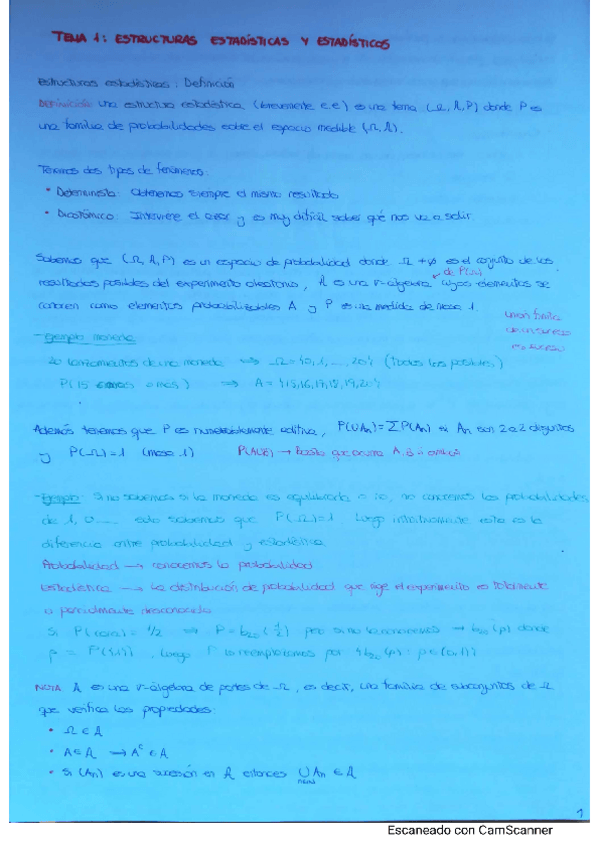 TEMA 1: ESTRUCTURAS ESTADÍSTICAS Y ESTADÍSTICOS
Estructuras estadísticas: Definición
Definición una estructura estadística (brevemente e.e) es una terna (Ω, A, P) donde P es
una familia de probabilidades sobre el espacio medible (Ω, A).
Tenemos dos tipos de fenómenos:
• Determinista: Obtenemos siempre el mismo resultado
• Interviene el azar y es muy difícil saber qué nos va a salir.
Sabemos que (Ω, A, P) es un espacio de probabilidad donde Ω ≠ φ es el conjunto de los
resultados posibles del experimento aleatorio, A es una σ-álgebra cuyos elementos se
de P(Ω)
conocen como elementos probabilizables A y P es una medida de masa 1.
Unión finita
de sucesos
es suceso
- Ejemplo moneda
20 lanzamientos de una moneda ⟹ Ω = {0, 1, ..., 20} (Todos los posibles)
P(15 o más) ⟹ A = {15,16,17,18,19,20}
Además tenemos que P es aditiva, P(∪An) = ∑P(An) si An son 2 a 2 disjuntos
y P(Ω) = 1 (masa 1) P(A∪B) → Basta que ocurra A, B o ambos
- Ejemplo: Si no sabemos si la moneda es equilibrada o no, no conocemos las probabilidades
de 1, 0 ... solo sabemos que P(Ω)=1. Luego intuitivamente esta es la
diferencia entre probabilidad y estadística
Probabilidad → conocemos la probabilidad
Estadística → La distribución de probabilidad que rige el experimento es totalmente
o parcialmente desconocida
Si P(cara) = 1/2 ⟹ P = b₂₀(1/2) pero si no la conocemos → b₂₀(p) donde
p = P({1}). Luego P lo reemplazamos por {b₂₀(p): p∈(0,1)}
NOTA A es una σ-álgebra de partes de Ω, es decir, una familia de subconjuntos de Ω
que verifica las propiedades:
• Ω ∈ A
• A ∈ A ⟶ Aᶜ ∈ A
• Si (An) es una sucesión en A entonces ∪ An ∈ A
n∈N
1
Escaneado con CamScanner